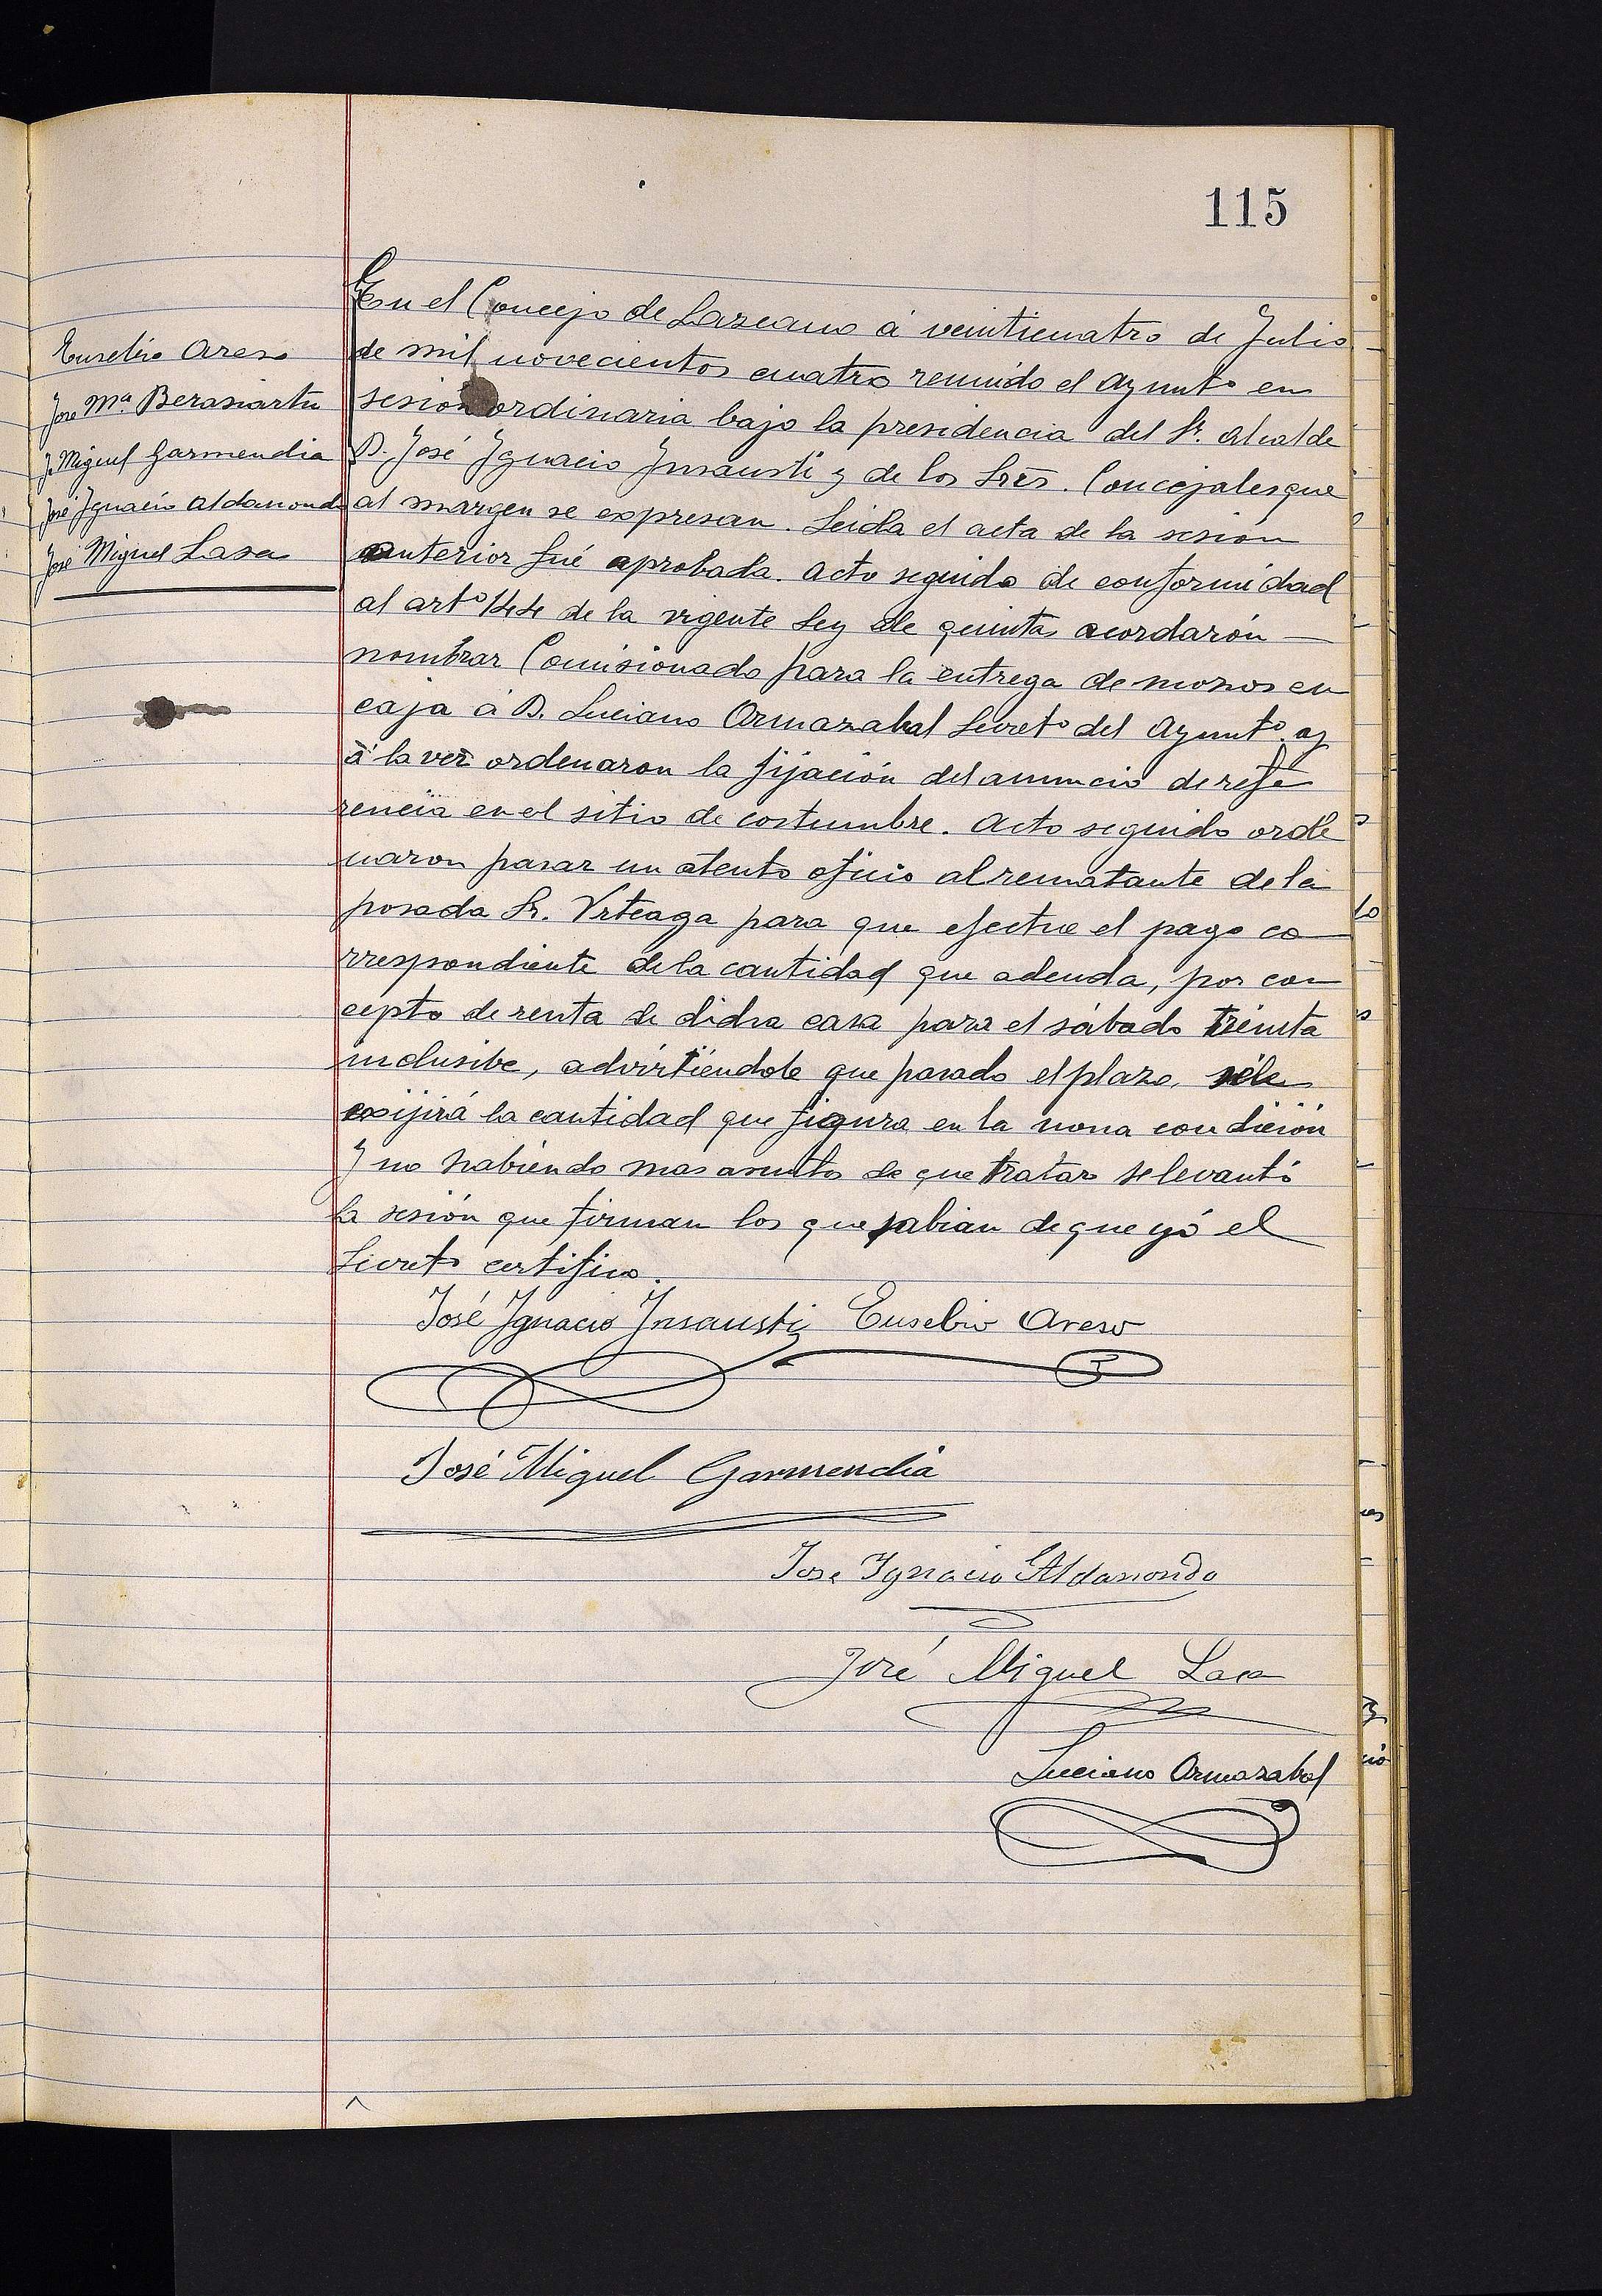 115
Eusebio Areso
José Mª Berasiartu
J. Miguel Garmendia
José Ignacio Aldamondo
José Miguel Lasa
En el Concejo de Lazcano á veinticuatro de Julio
de mil novecientos cuatro reunido el Ayuntº en
sesión ordinaria bajo la presidencia del Sr. Alcalde
D. José Ignacio Insausti y de los Sres. Concejales que
al margen se expresan. Leida el acta de la sesión
anterior fué aprobada. Acto seguido de conformidad
al artº 144 de la vigente Ley de quintas acordarón —
nombrar Comisionado para la entrega de mozos en
caja á D. Luciano Armazabal Secretº del Ayuntº y
á la vez ordenaron la fijación del anuncio de refe
rencia en el sitio de costumbre. Acto seguido orde
naron pasar un atento oficio al rematante de la
posada Sr. Urteaga para que efectue el pago co
rrespondiente de la cantidad que adeuda, por con
cepto de renta de dicha casa para el sábado treinta
inclusibe, advirtiéndole que pasado el plazo, se le
exijirá la cantidad que figura en la nona condición
Y no habiendo mas asuntos de que tratar se levantó
la sesión que firman los que sabian de que yó el
Secretº certifico.
José Ignacio Insausti Eusebio Areso
José Miguel Garmendia
Jose Ignacio Aldamondo
José Miguel Lasa
Luciano Armazabal